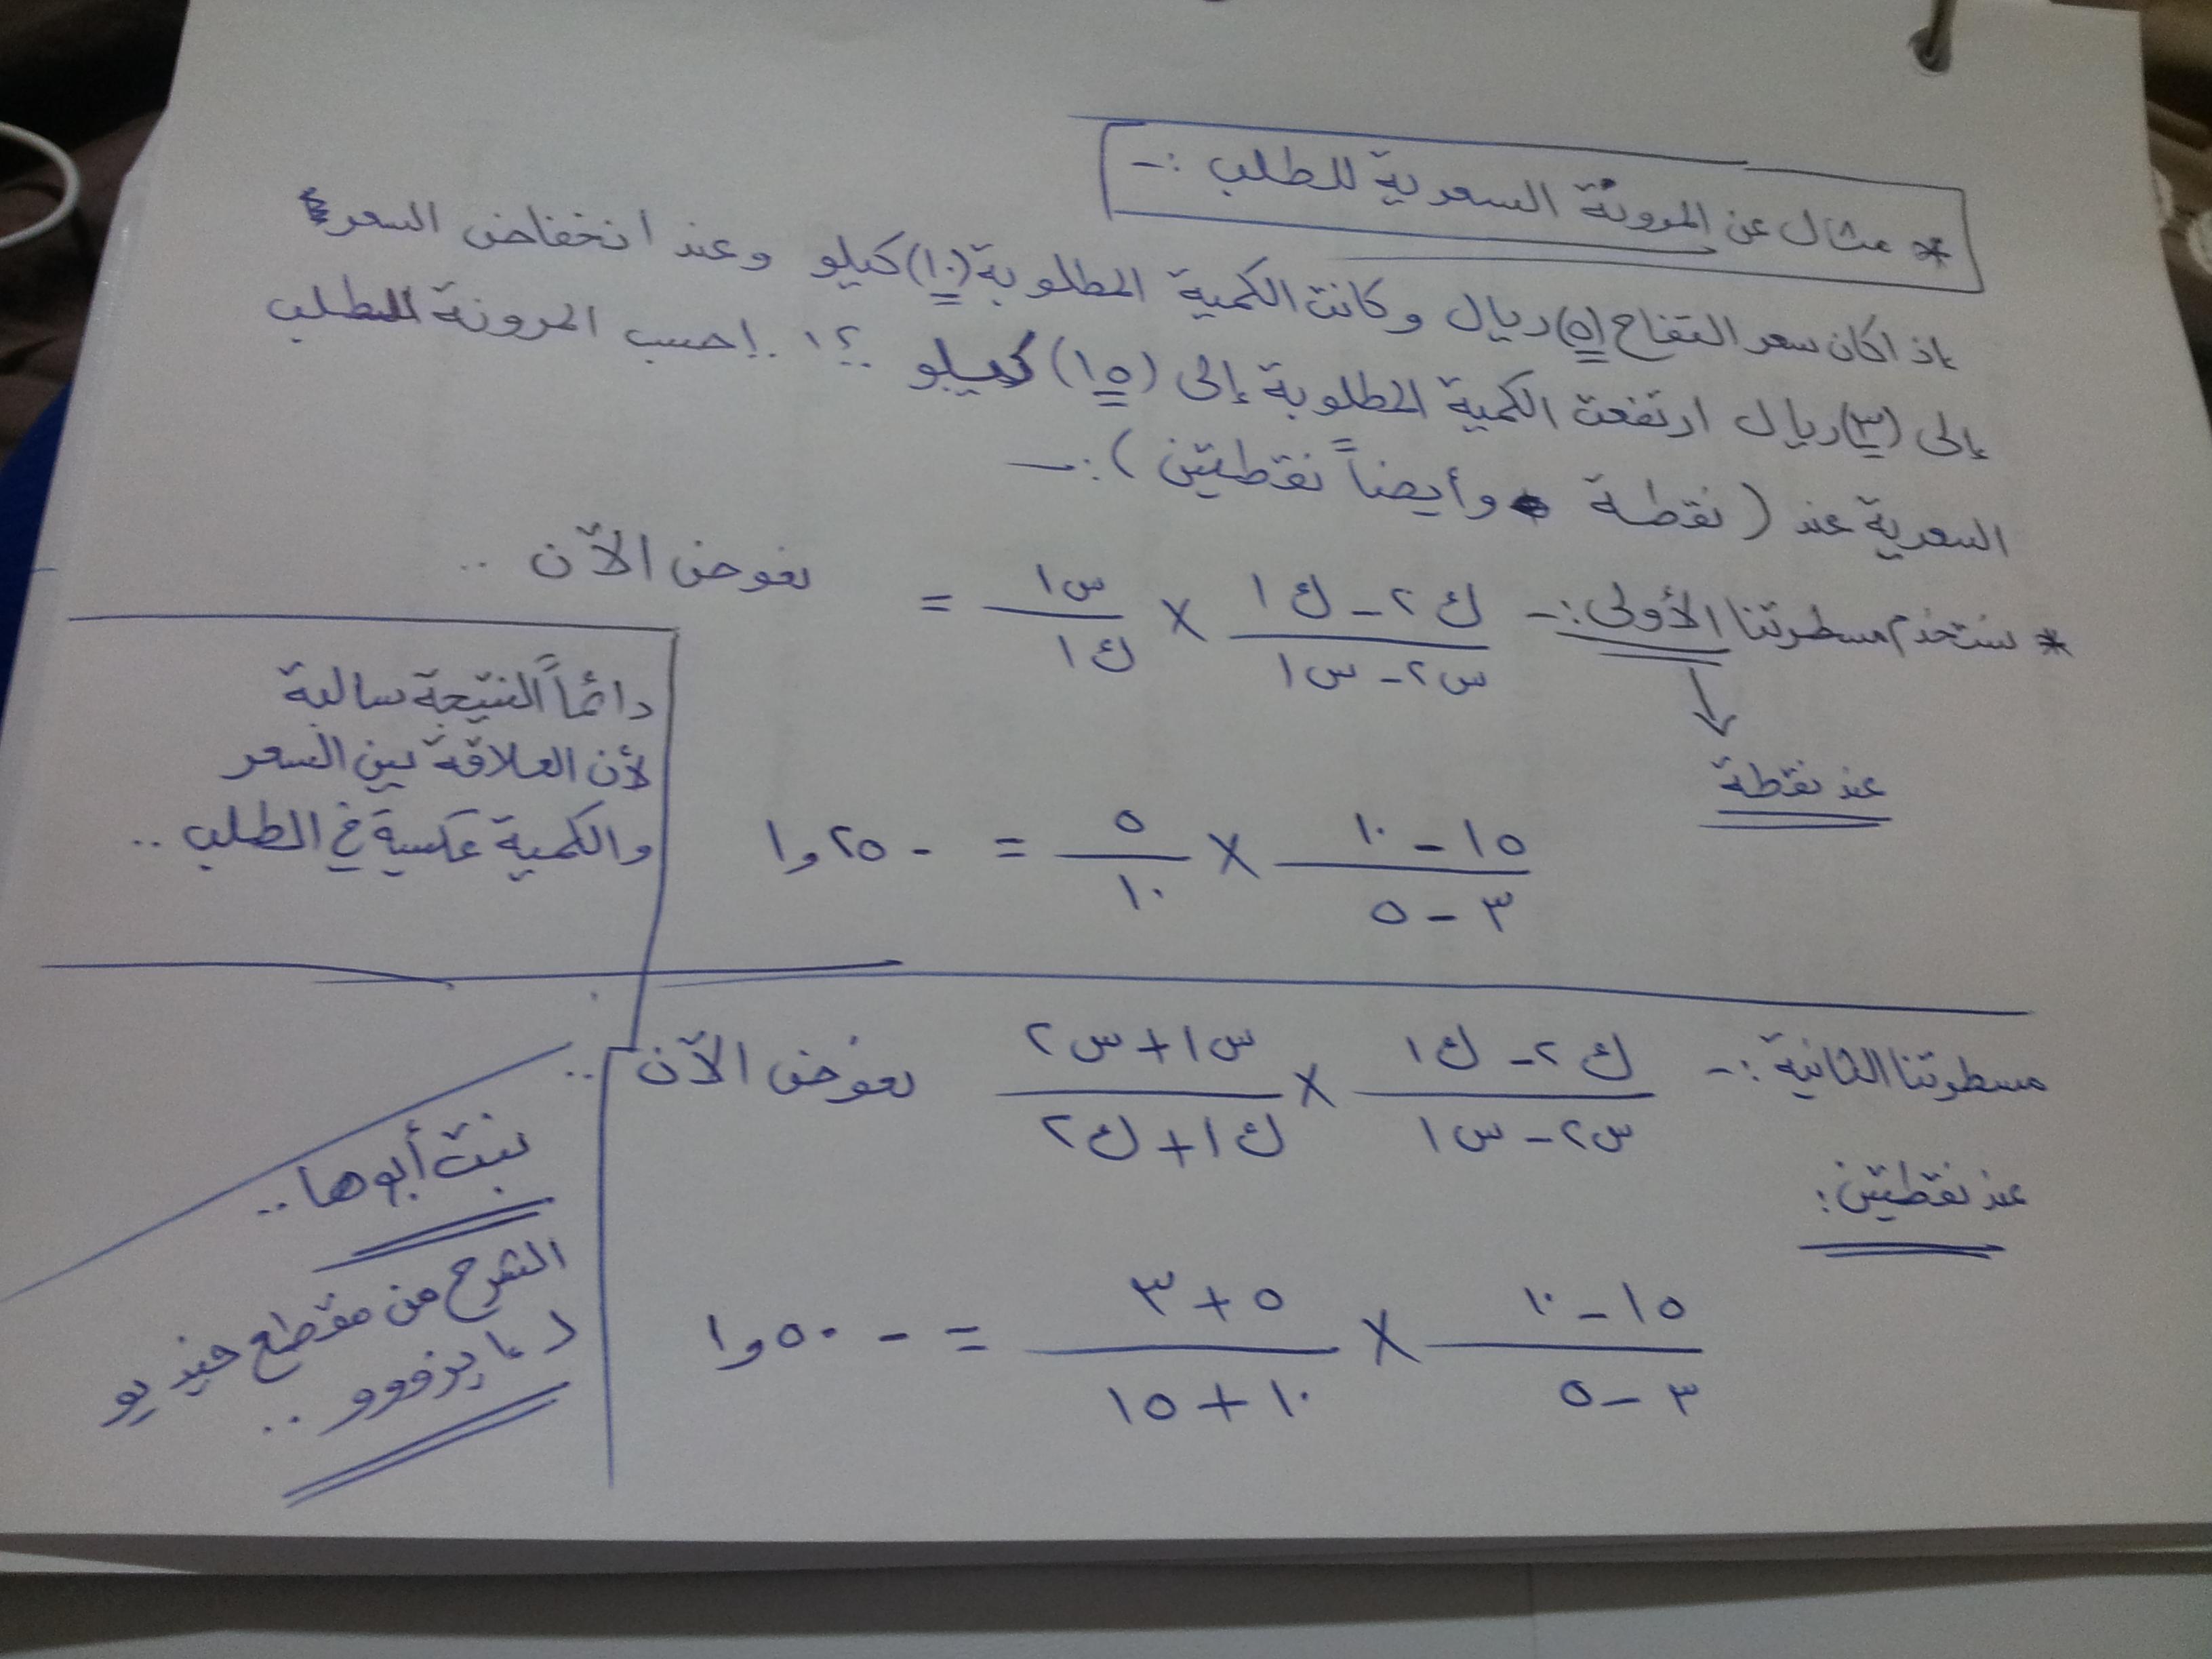 * مثال عن المرونة السعرية للطلب :-
إذا كان سعر التفاح (٥) ريال وكانت الكمية المطلوبة (١٠) كيلو وعند انخفاض السعر
إلى (٣) ريال ارتفعت الكمية المطلوبة إلى (١٥) كيلو ؟! . إحسب المرونة للطلب
السعرية عند ( نقطة وأيضاً نقطتين ) :-
* سنتخدم مسطرتنا الأولى :- ك٢ - ك١ / س٢ - س١ × س١ / ك١ = نعوض الآن ..
عند نقطة
١٥ - ١٠ / ٣ - ٥ × ٥ / ١٠ = - ١,٢٥
دائماً النتيجة سالبة
لأن العلاقة بين السعر
والكمية عكسية في الطلب ..
مسطرتنا الثانية :- ك٢ - ك١ / س٢ - س١ × س١ + س٢ / ك١ + ك٢ نعوض الآن ..
عند نقطتين :
١٥ - ١٠ / ٣ - ٥ × ٥ + ٣ / ١٠ + ١٥ = - ١,٥٠
بنت أبوها ..
الشرح من مقطع فيديو